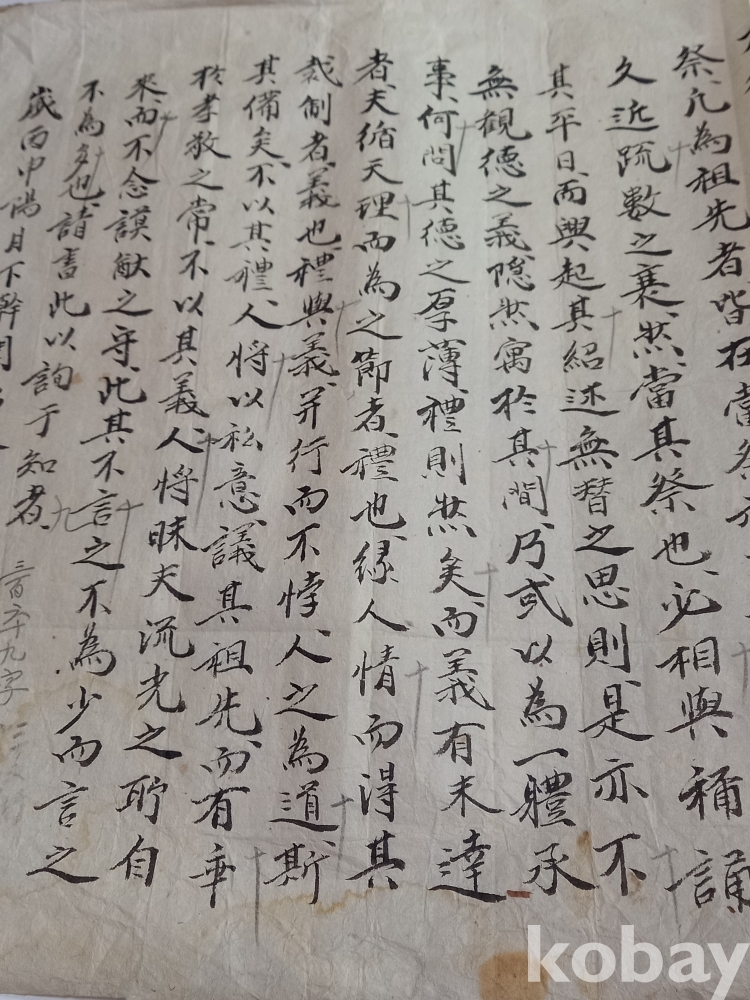 祭凡為祖先者皆在當祭
久近䟽數之衰然當其祭也必相與稱誦
其平日而興起其紹述無替之思則是亦不
無觀德之義隱然寓於其間乃或以為一體承
事何問其德之厚薄禮則然矣而義有未達
者夫循天理而為之節者禮也緣人情而得其
裁制者義也禮與義并行而不悖人之為道斯
其備矣不以其禮人將以私意議其祖先而有乖
於孝敬之常不以其義人將昧夫流光之所自
來而不念謨猷之守此其不言之不為少而言之
不為多也請書此以詢于知者
歲丙申陽月下澣
三百六十九字
kobay